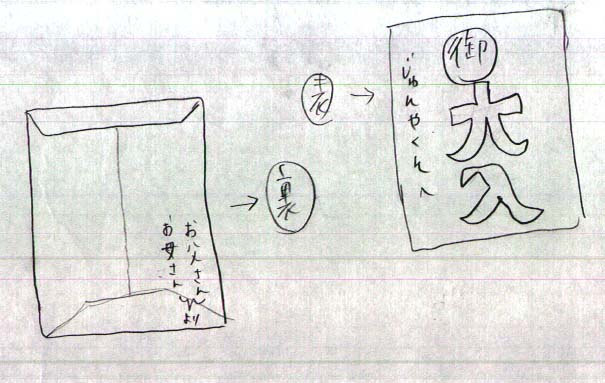 御
大入
じゅんやくんへ
表
裏
お父さん
お母さん
より